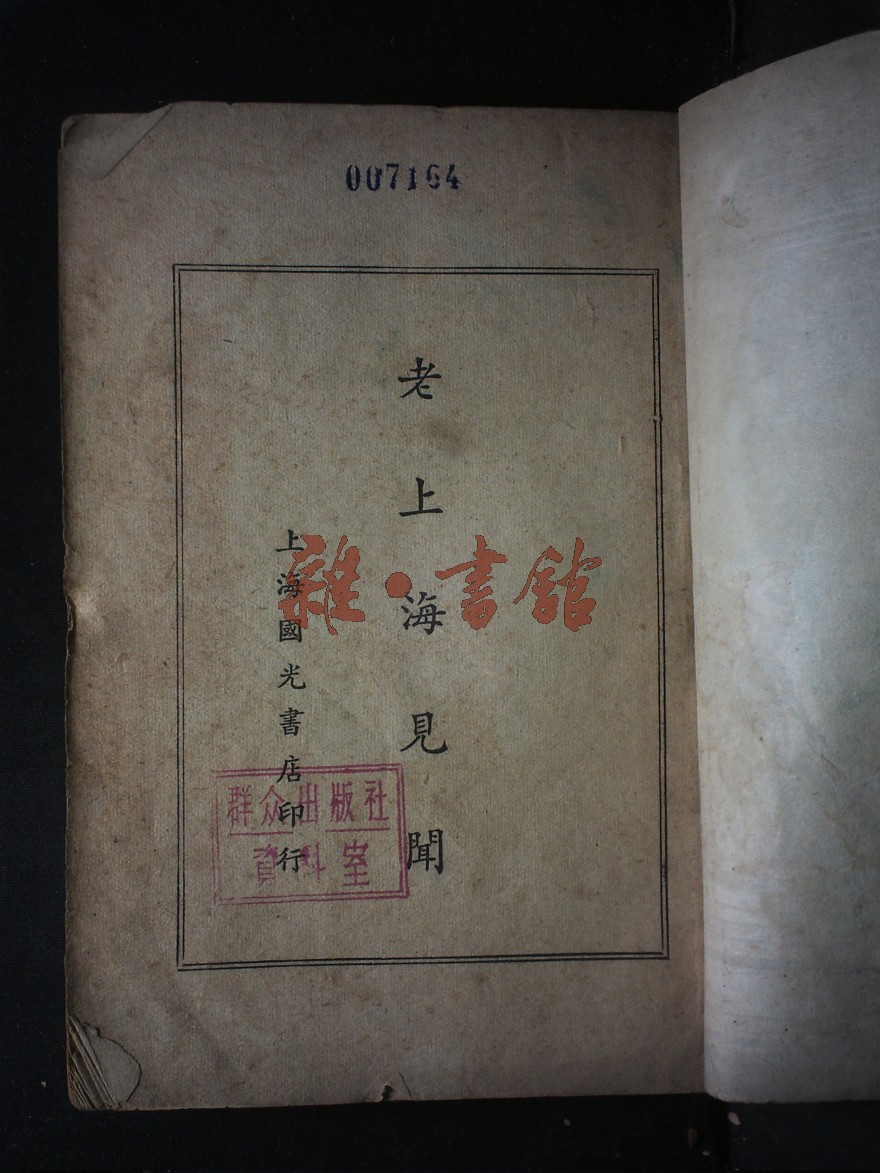 007164
老上海見聞
上海國光書店印行
雜·書館
群众出版社
資料室